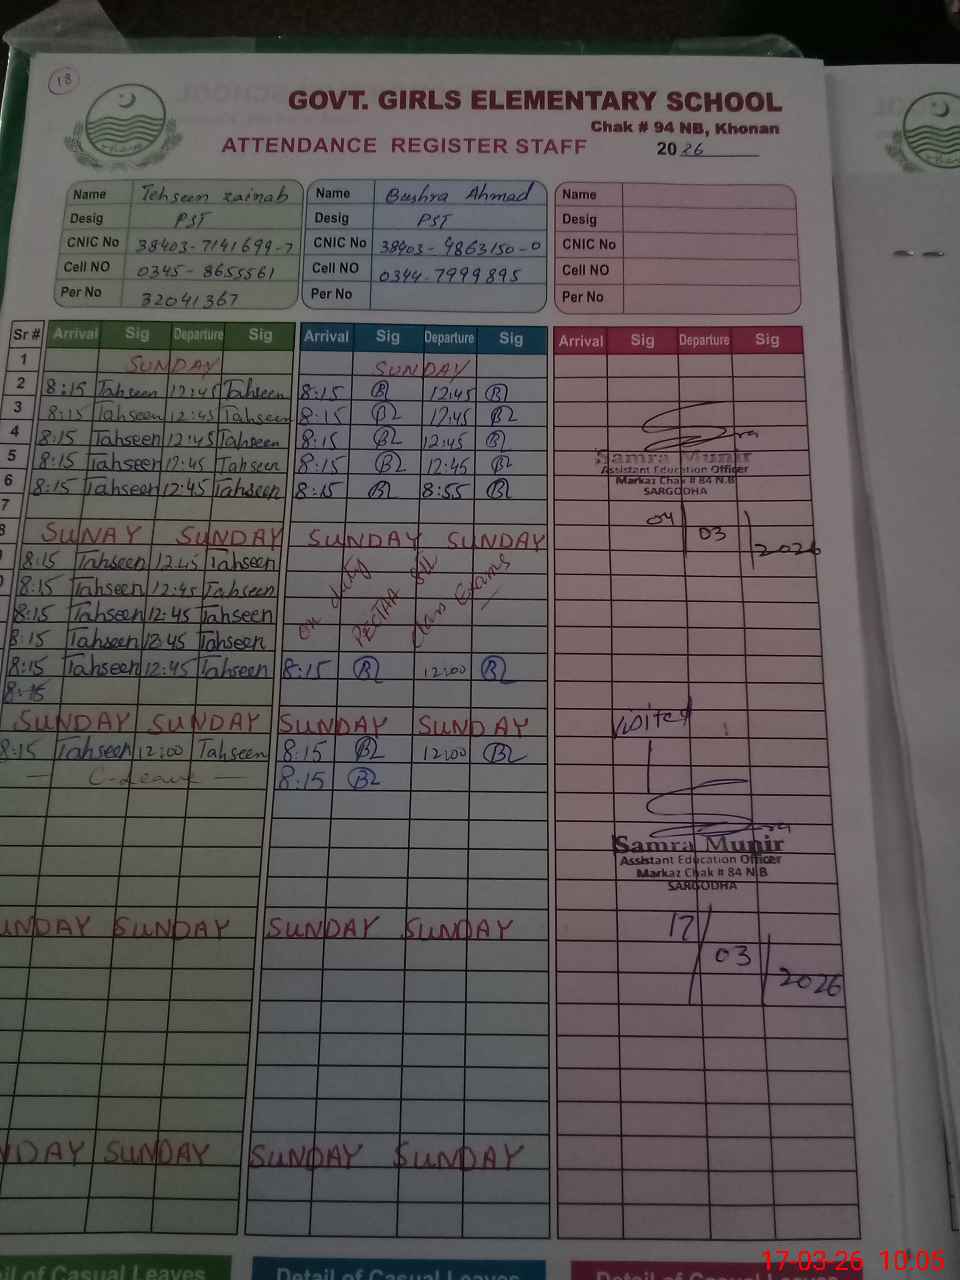 18
GOVT. GIRLS ELEMENTARY SCHOOL
Chak # 94 NB, Khonan
ATTENDANCE REGISTER STAFF 2026
Name Tehseen zainab Name Bushra Ahmad Name
Desig PST Desig PST Desig
CNIC No 38403-7141699-7 CNIC No 38403-9863150-0 CNIC No
Cell NO 0345-8655561 Cell NO 0344-7999895 Cell NO
Per No 32041367 Per No Per No
Sr # Arrival Sig Departure Sig Arrival Sig Departure Sig Arrival Sig Departure Sig
1 SUNDAY SUNDAY
2 8:15 Tahseen 12:45 Tahseen 8:15 BL 12:45 BL
3 8:15 Tahseen 12:45 Tahseen 8:15 BL 12:45 BL
4 8:15 Tahseen 12:45 Tahseen 8:15 BL 12:45 BL
5 8:15 Tahseen 12:45 Tahseen 8:15 BL 12:45 BL
6 8:15 Tahseen 12:45 Tahseen 8:15 BL 8:55 BL
Samra Munir
Assistant Education Officer
Markaz Chak # 84 N.B
SARGODHA
04/03/2026
7
8 SUNAY SUNDAY SUNDAY SUNDAY
8:15 Tahseen 12:45 Tahseen
8:15 Tahseen 12:45 Tahseen
8:15 Tahseen 12:45 Tahseen
8:15 Tahseen 12:45 Tahseen
on duty
PECTAA 8th
class Exams
8:15 Tahseen 12:45 Tahseen 8:15 BL 12:00 BL
8:15
SUNDAY SUNDAY SUNDAY SUNDAY
Visited
8:15 Tahseen 12:00 Tahseen 8:15 BL 12:00 BL
— C-Leave — 8:15 BL
Samra Munir
Assistant Education Officer
Markaz Chak # 84 N.B
SARGODHA
17/03/2026
UNDAY SUNDAY SUNDAY SUNDAY
NDAY SUNDAY SUNDAY SUNDAY
il of Casual Leaves Detail of Casual Leaves Detail of Casual Leaves
17-03-26 10:05